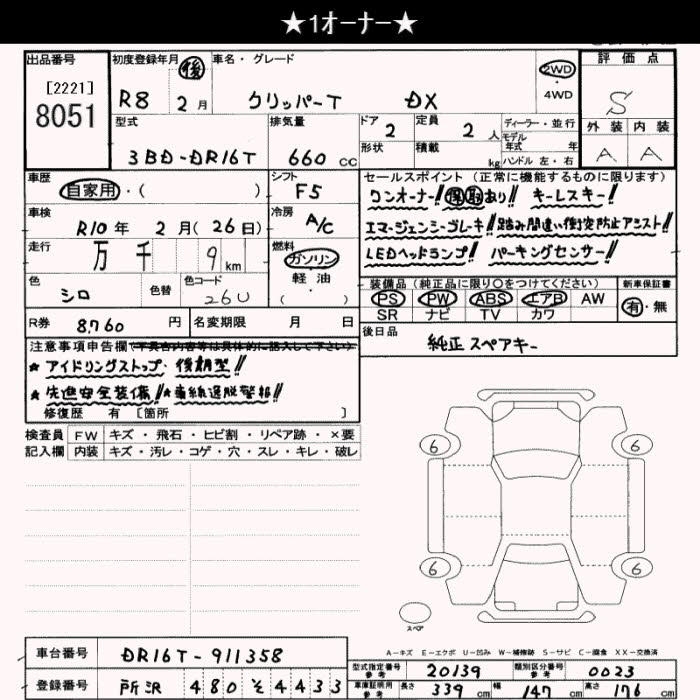 ★1オーナー★
出品番号
[2221]
8051
初度登録年月 後
R8 2月
車名・グレード
クリッパーT DX
2WD
・
4WD
評価点
S
外装 内装
A A
型式
3BD-DR16T
排気量
660 cc
ドア
2
定員
2 人
形状
積載
kg
ディーラー・並行
モデル年式 年
ハンドル 左・右
車歴
自家用・( )
シフト
F5
車検
R10年 2月(26日)
冷房
A/C
走行
万 千 9 km
燃料
ガソリン
・
軽油
( )
色
シロ
色替
色コード
26U
R券 8760 円
名変期限 月 日
セールスポイント(正常に機能するものに限ります)
ワンオーナー!! 保取あり!! キーレスキー!
エマージェンシーブレーキ!! 踏み間違い衝突防止アシスト!!
LEDヘッドランプ!! パーキングセンサー!!
装備品(純正品に限り○をつけてください)
PS PW ABS エアB AW
SR ナビ TV カワ
新車保証書
有・無
後日品
純正スペアキー
注意事項申告欄(不具合内容等は具体的に記入して下さい)
★アイドリングストップ・後期型!!
★先進安全装備!! ★車線逸脱警報!!
修復歴 有 [箇所 ]
検査員記入欄
FW キズ・飛石・ヒビ割・リペア跡・×要
内装 キズ・汚レ・コゲ・穴・スレ・キレ・破レ
6 6
6 6
スペア
A-キズ E-エクボ U-凹み W-補修跡 S-サビ C-腐食 XX-交換済
車台番号 DR16T-911358
登録番号 所沢 480 を 4433
型式指定番号 参考 20139
類別区分番号 参考 0023
車庫証明用 参考 長さ 339 cm 幅 147 cm 高さ 176 cm